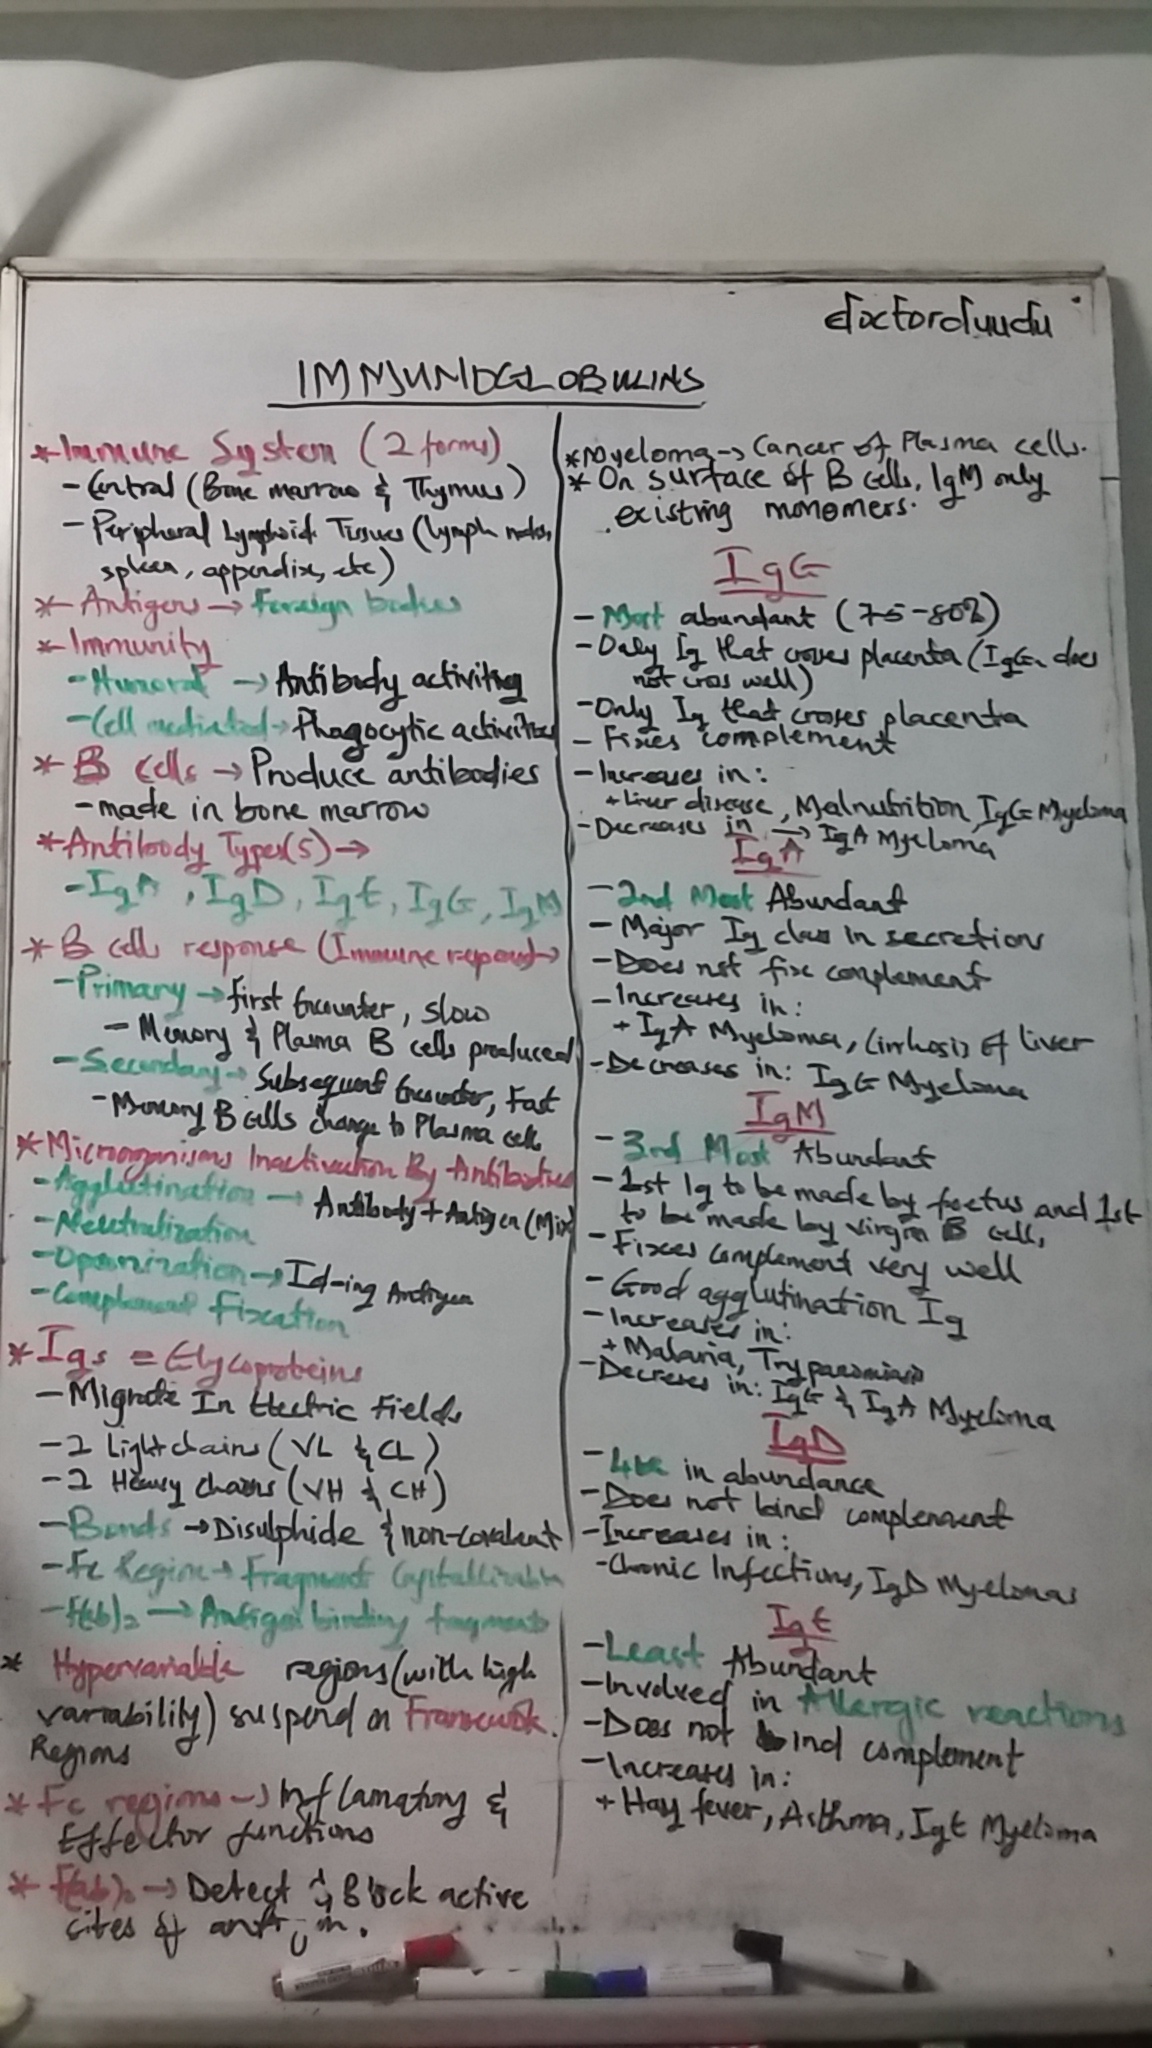 doctordudu
IMMUNOGLOBULINS
*Immune System (2 forms)
-Central (Bone marrow & Thymus)
-Peripheral Lymphoid Tissues (Lymph nodes,
spleen, appendix, etc)
* Antigens → Foreign bodies
*Immunity
-Humoral → Antibody activity
-Cell mediated → Phagocytic activities
* B Cells → Produce antibodies
-made in bone marrow
*Antibody Type(s) →
-IgA, IgD, IgE, IgG, IgM
* B cell response (Immune response) →
-Primary → First Encounter, Slow
-Memory & Plasma B cells produced
-Secondary → Subsequent Encounter, Fast
-Memory B cells change to Plasma cells
*Microorganisms Inactivation By Antibodies
-Agglutination → Antibody + Antigen (Mix)
-Neutralization
-Opsonization → Id-ing Antigen
-Complement Fixation
*Igs = Glycoproteins
-Migrate In Electric Fields
-2 Light chains (VL & CL)
-2 Heavy chains (VH & CH)
-Bonds → Disulphide & non-covalent
-Fc Region → Fragment Crystallizable
-F(ab)2 → Antigen binding fragment
* Hypervariable regions (with high
variability) suspend on Framework
Regions
* Fc regions → Inflammatory &
Effector functions
* F(ab)2 → Detect & Block active
sites of
*Myeloma → Cancer of Plasma cells.
*On surface of B cells, IgM only
existing monomers.
IgG
-Most abundant (75-80%)
-Only Ig that crosses placenta (IgG2 does
not cross well)
-Only Ig that crosses placenta
-Fixes complement
-Increases in:
+Liver disease, Malnutrition, IgG Myeloma
-Decreases in → IgA Myeloma
IgA
-2nd Most Abundant
-Major Ig class in secretions
-Does not fix complement
-Increases in:
+ IgA Myeloma, Cirrhosis of liver
-Decreases in: IgG Myeloma
IgM
-3rd Most Abundant
-1st Ig to be made by foetus and 1st
to be made by virgin B cells
-Fixes complement very well
-Good agglutination Ig
-Increases in:
+ Malaria, Trypanosomiasis
-Decreases in: IgG & IgA Myeloma
IgD
-4th in abundance
-Does not bind complement
-Increases in:
-Chronic Infections, IgD Myelomas
IgE
-Least Abundant
-Involved in Allergic reactions
-Does not bind complement
-Increases in:
+ Hay fever, Asthma, IgE Myeloma